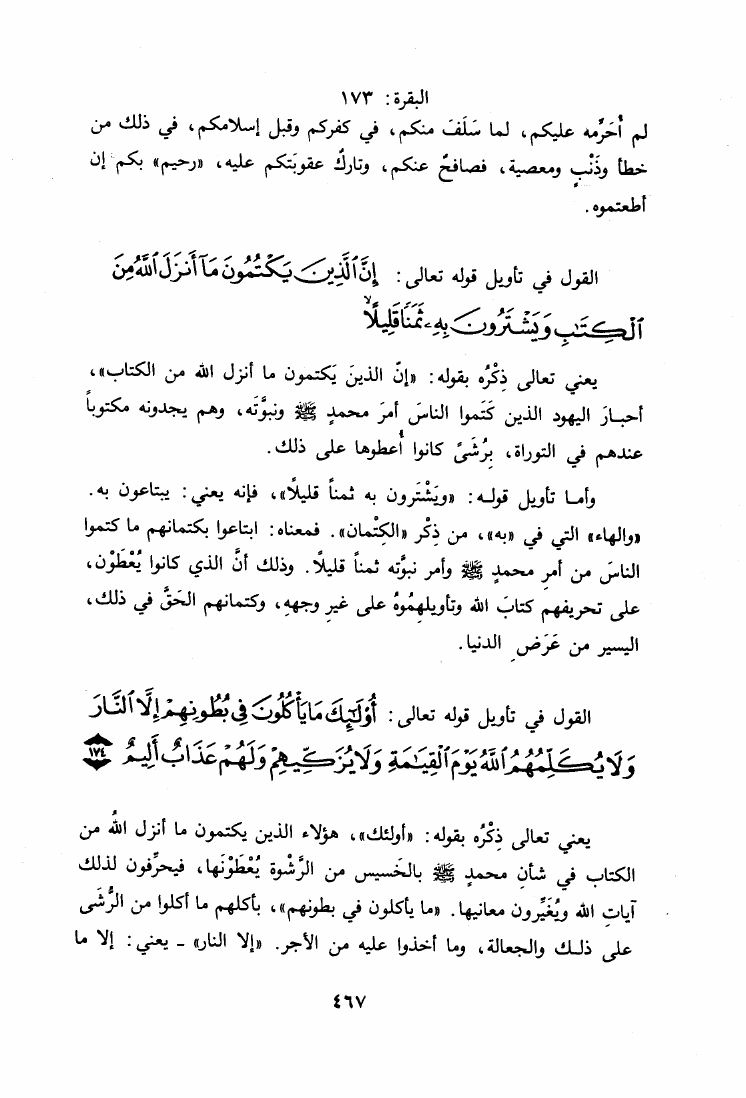 البقرة: ١٧٣
لم أُحَرِّمه عليكم، لما سَلَفَ منكم، في كفركم وقبل إسلامكم، في ذلك من
خطأ وذَنْبٍ ومعصية، فصافحٌ عنكم، وتاركٌ عقوبَتكم عليه، «رحيم» بكم إن
أطعتموه.
القول في تأويل قوله تعالى: إِنَّ ٱلَّذِينَ يَكْتُمُونَ مَآ أَنزَلَ ٱللَّهُ مِنَ
ٱلْكِتَٰبِ وَيَشْتَرُونَ بِهِۦ ثَمَنًا قَلِيلًاۙ
يعني تعالى ذِكْرُه بقوله: «إنّ الذينَ يَكتمون ما أنزل الله من الكتاب»،
أحبـارَ اليهود الذين كَتَموا الناسَ أمرَ محمدٍ ﷺ ونبوَّتَه، وهم يجدونه مكتوباً
عندهم في التوراة، بِرُشىً كانوا أُعطوها على ذلك.
وأمـا تأويل قولـه: «ويَشْتَرون به ثمناً قليلًا»، فإنه يعني: يبتاعون به.
«والهاء» التي في «به»، من ذِكْر «الكِتْمان». فمعناه: ابتاعوا بكتمانهم ما كتموا
الناسَ من أمرِ محمدٍ ﷺ وأمر نبوَّته ثمناً قليلًا. وذلك أنَّ الذي كانوا يُعْطَوْن،
على تحريفهم كتابَ الله وتأويلهِمُوهُ على غيرِ وجههِ، وكتمانهم الحَقَّ في ذلك،
اليسير من عَرَضِ الدنيا.
القول في تأويل قوله تعالى: أُو۟لَٰٓئِكَ مَا يَأْكُلُونَ فِى بُطُونِهِمْ إِلَّا ٱلنَّارَ
وَلَا يُكَلِّمُهُمُ ٱللَّهُ يَوْمَ ٱلْقِيَٰمَةِ وَلَا يُزَكِّيهِمْ وَلَهُمْ عَذَابٌ أَلِيمٌ ١٧٤
يعني تعالى ذِكْرُه بقوله: «أولئك»، هؤلاء الذين يكتمون ما أنزل اللهُ من
الكتاب في شأنِ محمدٍ ﷺ بالخَسيس من الرَّشْوة يُعْطَوْنَها، فيحرِّفون لذلك
آياتِ الله ويُغَيِّرون معانيها. «ما يأكلون في بطونهم»، بأكلهم ما أكلوا من الرُّشَى
على ذلـك والجعالة، وما أخذوا عليه من الأجر. «إلا النار» ـ يعني: إلا ما
٤٦٧